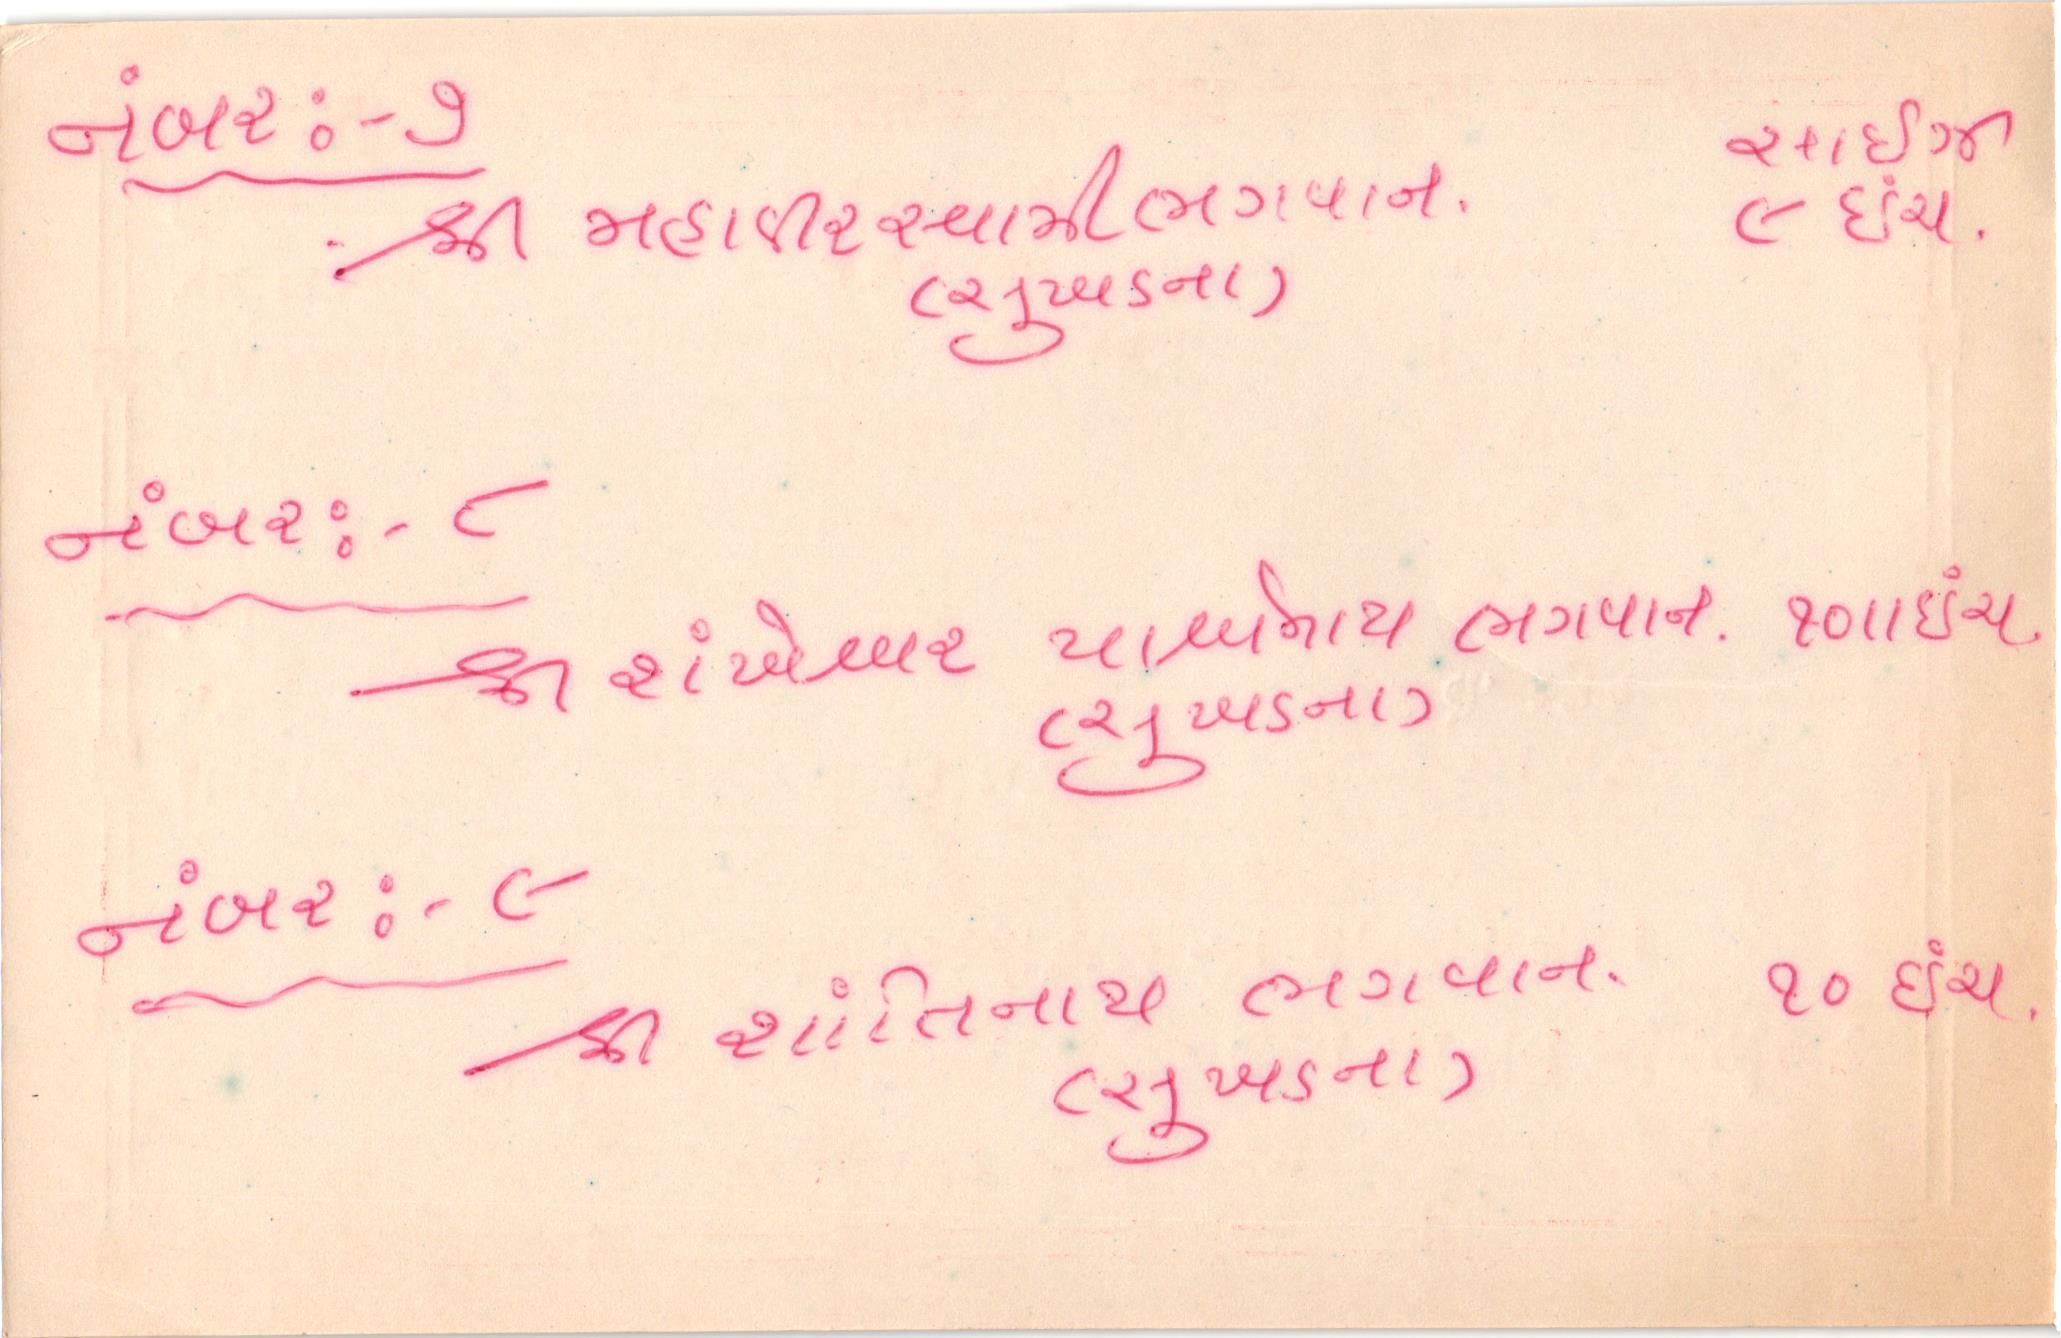 નંબર :- ૭
સાઈઝ
શ્રી મહાવીરસ્વામી ભગવાન.
૯ ઇંચ.
(સુખડના)
નંબર :- ૮
શ્રી શંખેશ્વર પાર્શ્વનાથ ભગવાન. ૧૦॥ ઇંચ.
(સુખડના)
નંબર :- ૯
શ્રી શાંતિનાથ ભગવાન. ૧૦ ઇંચ.
(સુખડના)